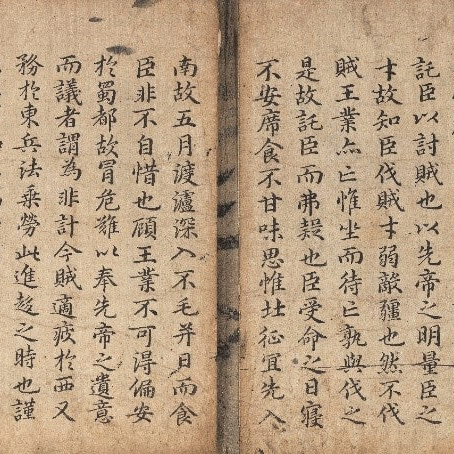 託臣以討賊也以先帝之明量臣之
才故知臣伐賊才弱敵疆也然不伐
賊王業亦亡惟坐而待亡孰與伐之
是故託臣而弗疑也臣受命之日寢
不安席食不甘味思惟北征宜先入
南故五月渡瀘深入不毛并日而食
臣非不自惜也顧王業不可得偏安
於蜀都故冒危難以奉先帝之遺意
而議者謂為非計今賊適疲於西又
務於東兵法乘勞此進趍之時也謹